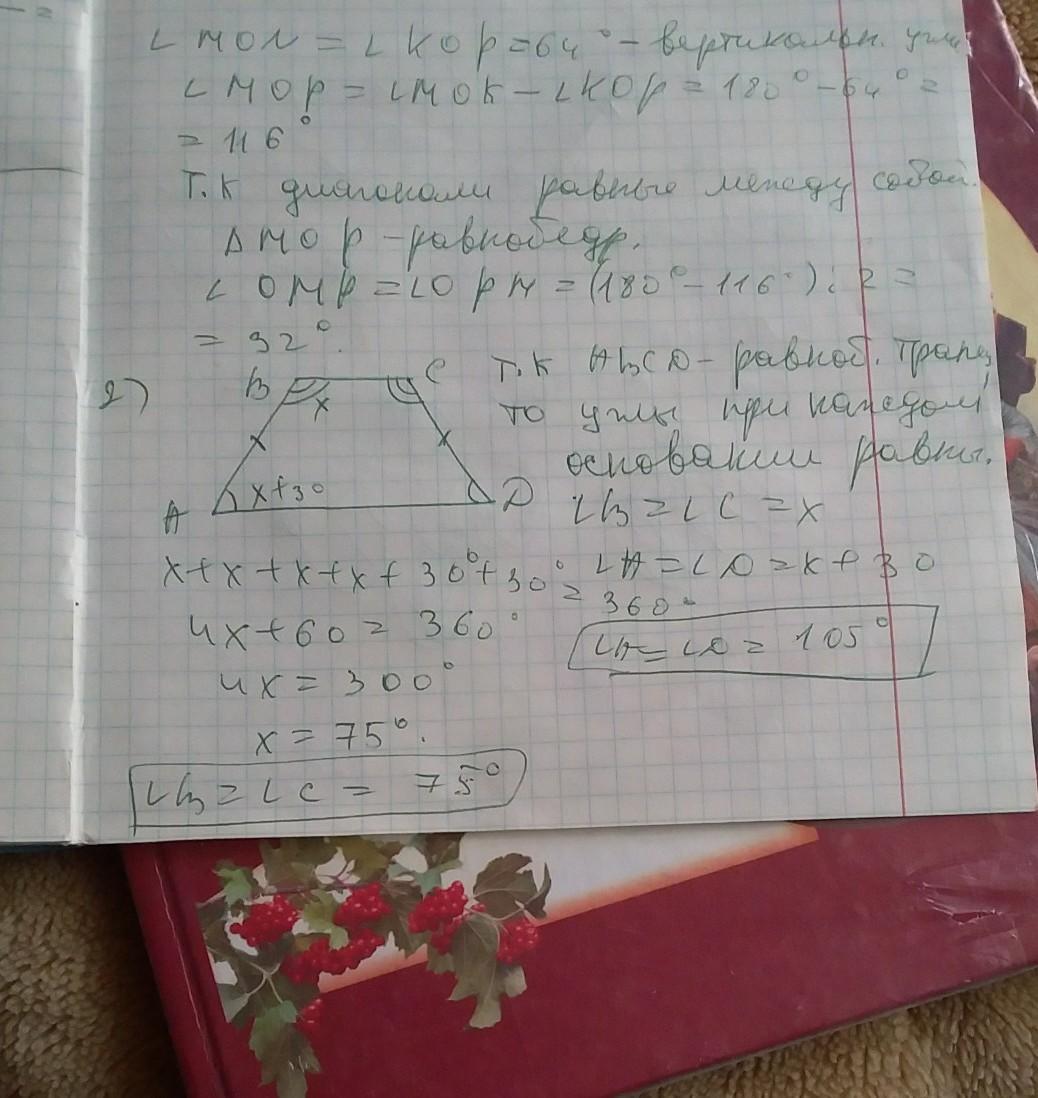 ∠MON = ∠KOP = 64° - вертикальн. углы
∠MOP = ∠MOK - ∠KOP = 180° - 64° =
= 116°
Т.к диагонали равные между собой.
ΔMOP - равнобедр.
∠OMP = ∠OPM = (180° - 116°) : 2 =
= 32°.
2)
B C
x
A x+30 D
Т.к ABCD - равноб. трапец,
то углы при каждом
основании равны.
∠B = ∠C = x
∠A = ∠D = x + 30
x + x + x + x + 30° + 30° = 360°
4x + 60 = 360°
4x = 300°
x = 75°.
∠B = ∠C = 75°
∠A = ∠D = 105°